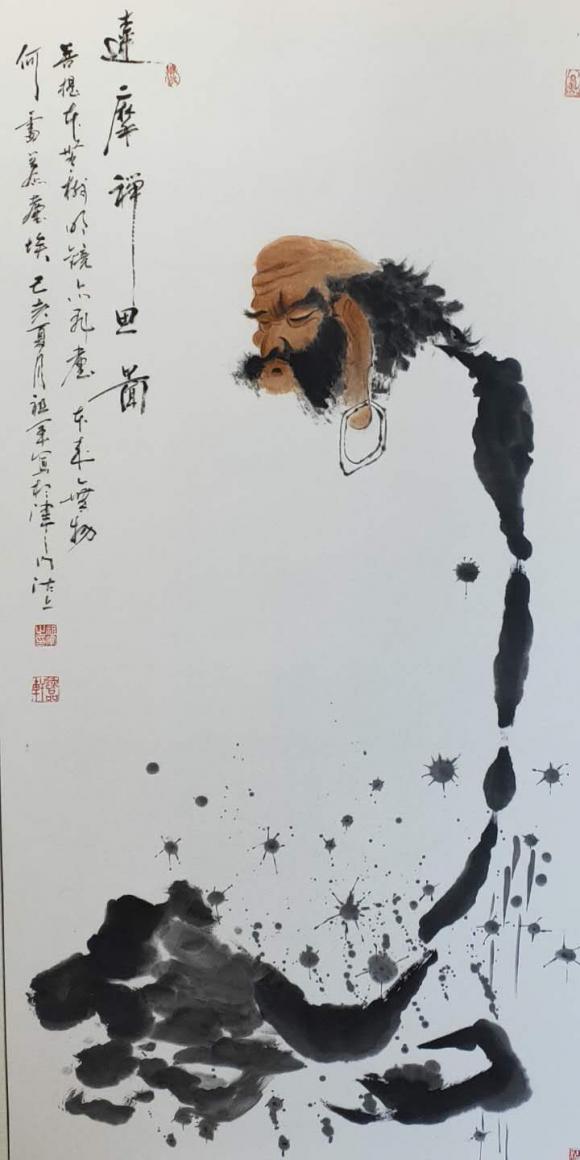 達摩禪思圖
菩提本無樹明鏡亦非臺 本來無物
何需惹塵埃 己亥夏月祖軍寫於津門沽上